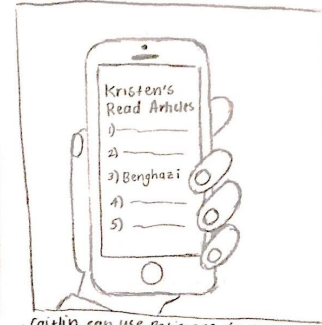 Kristen's
Read Articles
1)
2)
3) Benghazi
4)
5)
Caitlin can use